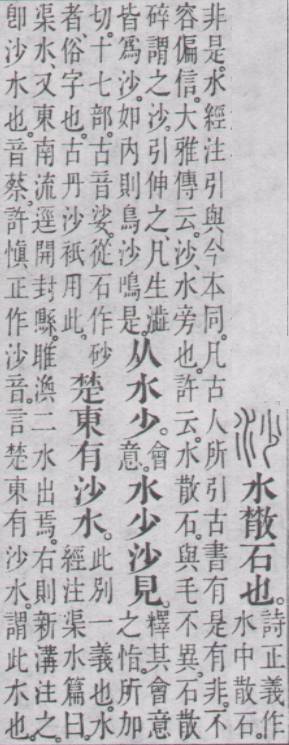 水散石也。詩正義作水中散石。
非是。水經注引與今本同。凡古人所引古書有是有非。不
容偏信。大雅傳云。沙、水旁也。許云。水散石。與毛不異。石散
碎謂之沙。引伸之凡生澁
皆爲沙。如內則鳥沙鳴是。从水少。會意。水少沙見。釋其會意之恉。所加
切。十七部。古音娑。從石作砂
者、俗字也。古丹沙衹用此。楚東有沙水。此別一義也。水經注渠水篇曰。
渠水又東南流逕開封縣。睢渙二水出焉。右則新溝注之。
卽沙水也。音蔡。許愼正作沙音。言楚東有沙水。謂此水也。